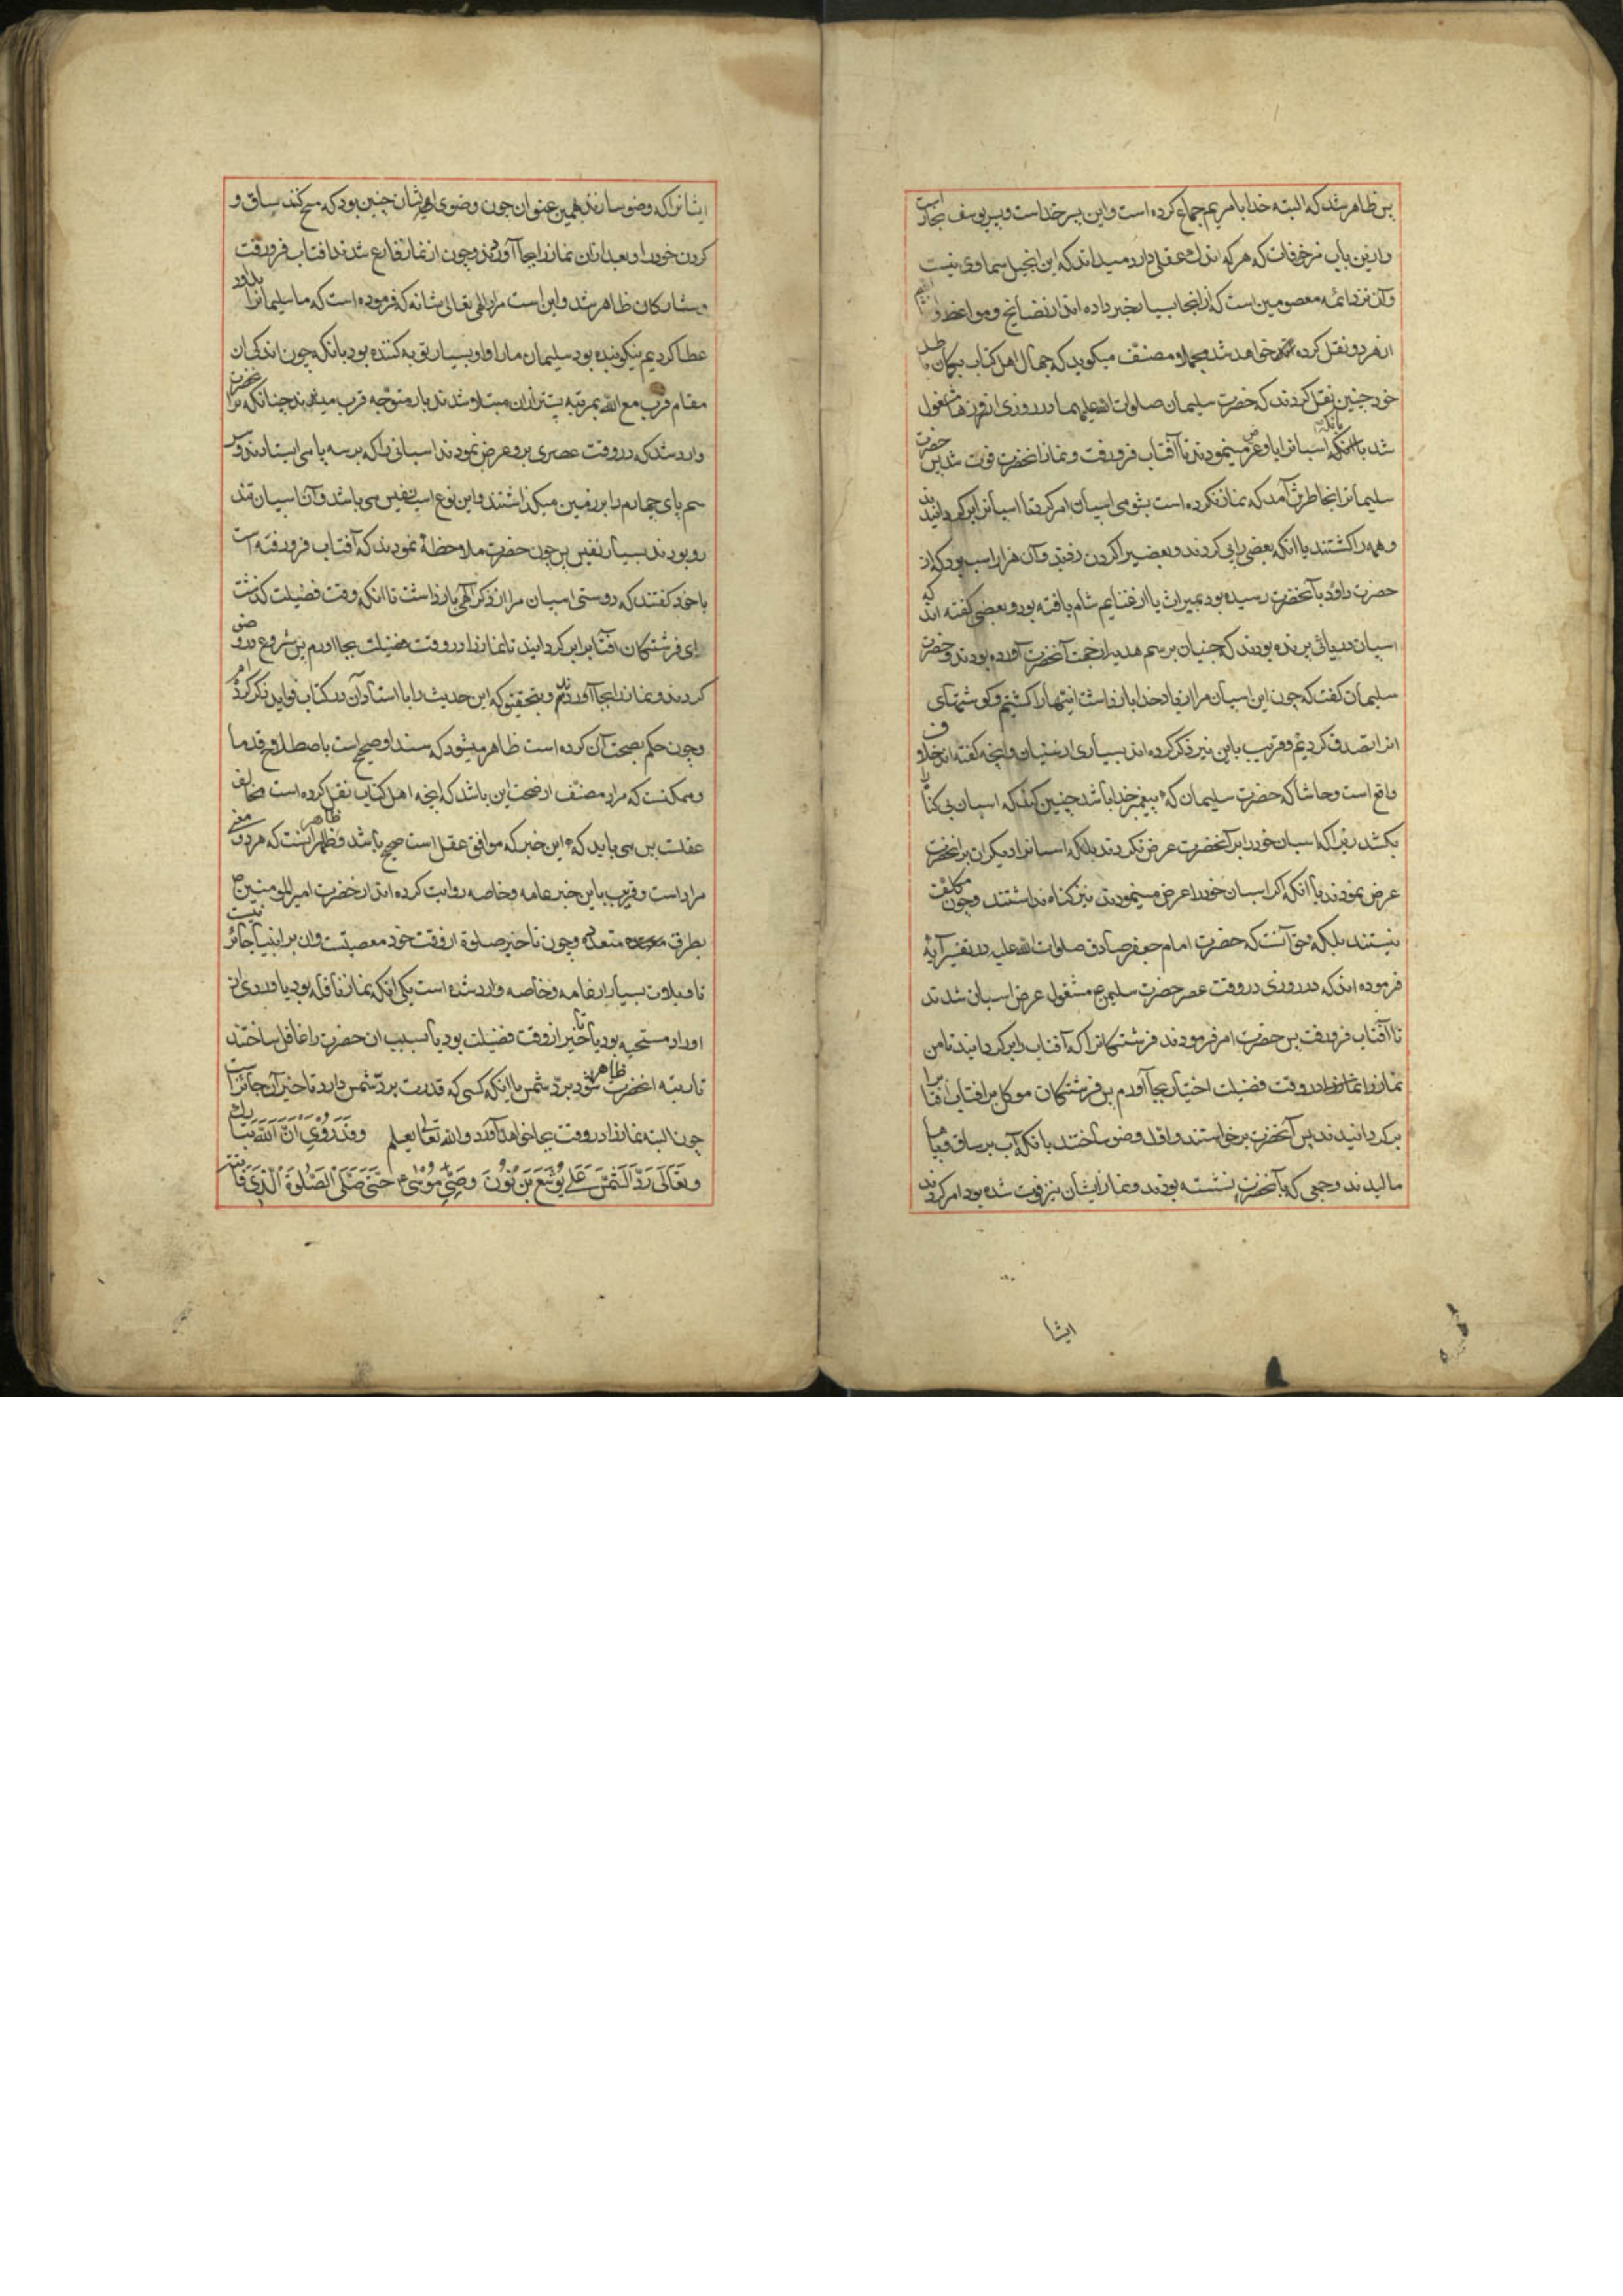 پس ظاهر شد که البته خدا با مریم جماع کرده است و این پسر خداست و پسر یوسف نجار است
و ازین باب مزخرفات که هر که اندک عقلی دارد میداند که این انجیل سماوی نیست
و آن نزد ائمه معصومین است که از انجا بسیار خبر داده اند از نصایح و مواعظ و
از هر دو نقل کرده خواهد شد مجملا و مصنف میکوید که جهال اهل کتاب بکمان باطل
خود چنین نقل کردند که حضرت سلیمان صلوات الله علیهما در روزی از روزها مشغول
شد بانکه اسبانرا باو عرض مینمودند تا آفتاب فرو رفت و نماز انحضرت فوت شد پس حضرت
سلیمانرا بخاطرش آمد که نماز نکرده است بشومی اسبان امر کرد تا اسبانرا بر کردانیدند
و همه را کشتند با انکه بعضی را پی کردند و بعضیرا کردن زدند و آن هزار اسب بود که از
حضرت داود بآنحضرت رسیده بود بمیراث یا از غنایم شام یافته بود و بعضی گفته اند که
اسبان دریائی پرنده بودند که جنیان برسم هدیه از جهت آنحضرت آورده بودند و حضرت
سلیمان گفت که چون این اسبان مرا از یاد خدا باز داشت اینهارا کشتیم و کوشتهای
انرا تصدق کردیم و قریب باین نیز ذکر کرده اند بسیاری از سنیان و انچه گفته اند خلاف
واقع است و حاشا که حضرت سلیمان که پیغمبر خدا باشد چنین کند که اسبان بی کناه را
بکشد زیرا که اسبان خود را بر آنحضرت عرض نکردند بلکه اسبانرا دیکران بر انحضرت
عرض نمودند با انکه اکر اسبان خود را عرض مینمودند نیز کناه نداشتند و چون مکلف
نیستند بلکه حق آنست که حضرت امام جعفر صادق صلوات الله علیه در تفسیر آیه
فرموده اند که در روزی در وقت عصر حضرت سلیمن ع مشغول عرض اسبان شدند
تا آفتاب فرو رفت پس حضرت امر فرمودند فرشتکانرا که آفتاب را بر کردانید تا من
نماز را در وقت فضیلت اختیار بجا آورم پس فرشتکان موکل بر افتاب افتاب را
بر کردانیدند پس آنحضرت برخواستند و اول وضو ساختند بانکه آب بر ساق و پاها
مالیدند و جمعی که با آنحضرت نشسته بودند و نماز ایشان نیز فوت شده بود امر کردند
ایشا
ایشانرا که وضو سازند بهمین عنوان چون وضوی ایشان چنین بود که مسح کنند ساق و
کردن خود را و بعد از ان نماز را بجا آوردند و چون از نماز فارغ شدند افتاب فرو رفت
و ستارکان ظاهر شد و این است مراد الهی تعالی شانه که فرموده است که ما سلیمانرا بداود
عطا کردیم نیکو بنده بود سلیمان مارا و او بسیار توبه کننده بود بانکه چون اندکی از ان
مقام قرب مع الله بمرتبه پستتر از ان مبتلا شدند باز متوجه قرب میشدند چنانکه بر آنحضرت
وارد شد که در وقت عصری برو عرض نمودند اسبانی را که بر سه پا می ایستادند و سر
سم پای چهارم را بر زمین میکذاشتند و این نوع اسب نفیس می باشد و آن اسبان تند
رو بودند بسیار نفیس پس چون حضرت ملاحظه نمودند که آفتاب فرو رفته است
با خود گفتند که دوستی اسبان مرا از ذکر الهی باز داشت تا انکه وقت فضیلت گذشت
ای فرشتگان افتاب را بر کردانید تا نماز را در وقت فضیلت بجا اورم پس شروع در وضو
کردند و نماز را بجا آوردند و بتحقیق که این حدیث را با اسناد آن در کتاب فواید ذکر کرده ام
و چون حکم بصحت آن کرده است ظاهر میشود که سند او صحیح است باصطلاح قدما
و ممکنست که مراد مصنف از صحت این باشد که انچه اهل کتاب نقل کرده است مخالف
عقلست پس می باید که این خبر که موافق عقل است صحیح باشد و ظاهر اینست که هر دو معنی
مراد است و قریب باین خبر عامه و خاصه روایت کرده اند از حضرت امیر المومنین ص
بطرق متعدده و چون تاخیر صلوة از وقت خود معصیتست و ان بر انبیا جائز نیست
تاویلات بسیار از عامه و خاصه وارد شده است یکی انکه نماز نافله بود یا وردی از
اوراد مستحبه بود یا تاخیر از وقت فضیلت بود یا بسبب ان حضرت را غافل ساختند
تا رتبه انحضرت ظاهر شود برد شمس یا انکه کسی که قدرت برد شمس دارد تاخیر آن جائز است
چون البته نماز را در وقت بجا خواهد آورد و الله تعالی یعلم وَقَدْ رُوِيَ اَنَّ اللهَ تَبارَكَ
وَتَعَالَى رَدَّ الشَّمْسَ عَلَى يُوشَعَ بْنِ نُونَ وَصِيِّ مُوسَى ع حَتَّى صَلَّى الصَّلٰوةَ الَّذِي فَاتَتْه